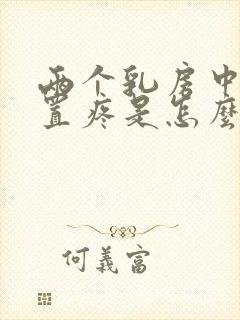 两个乳房中
置疼是怎麼
何義富